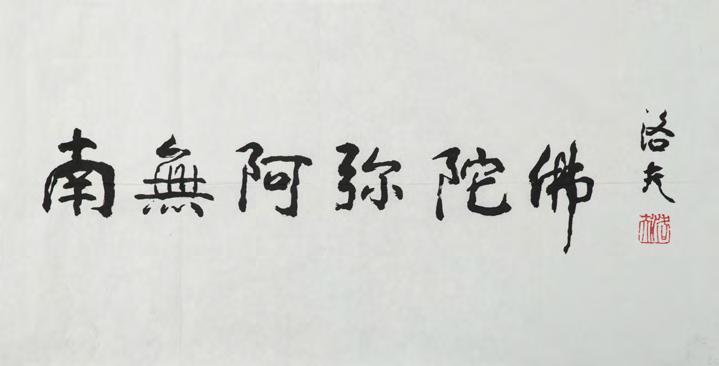 南無阿弥陀佛
洛夫
洛夫